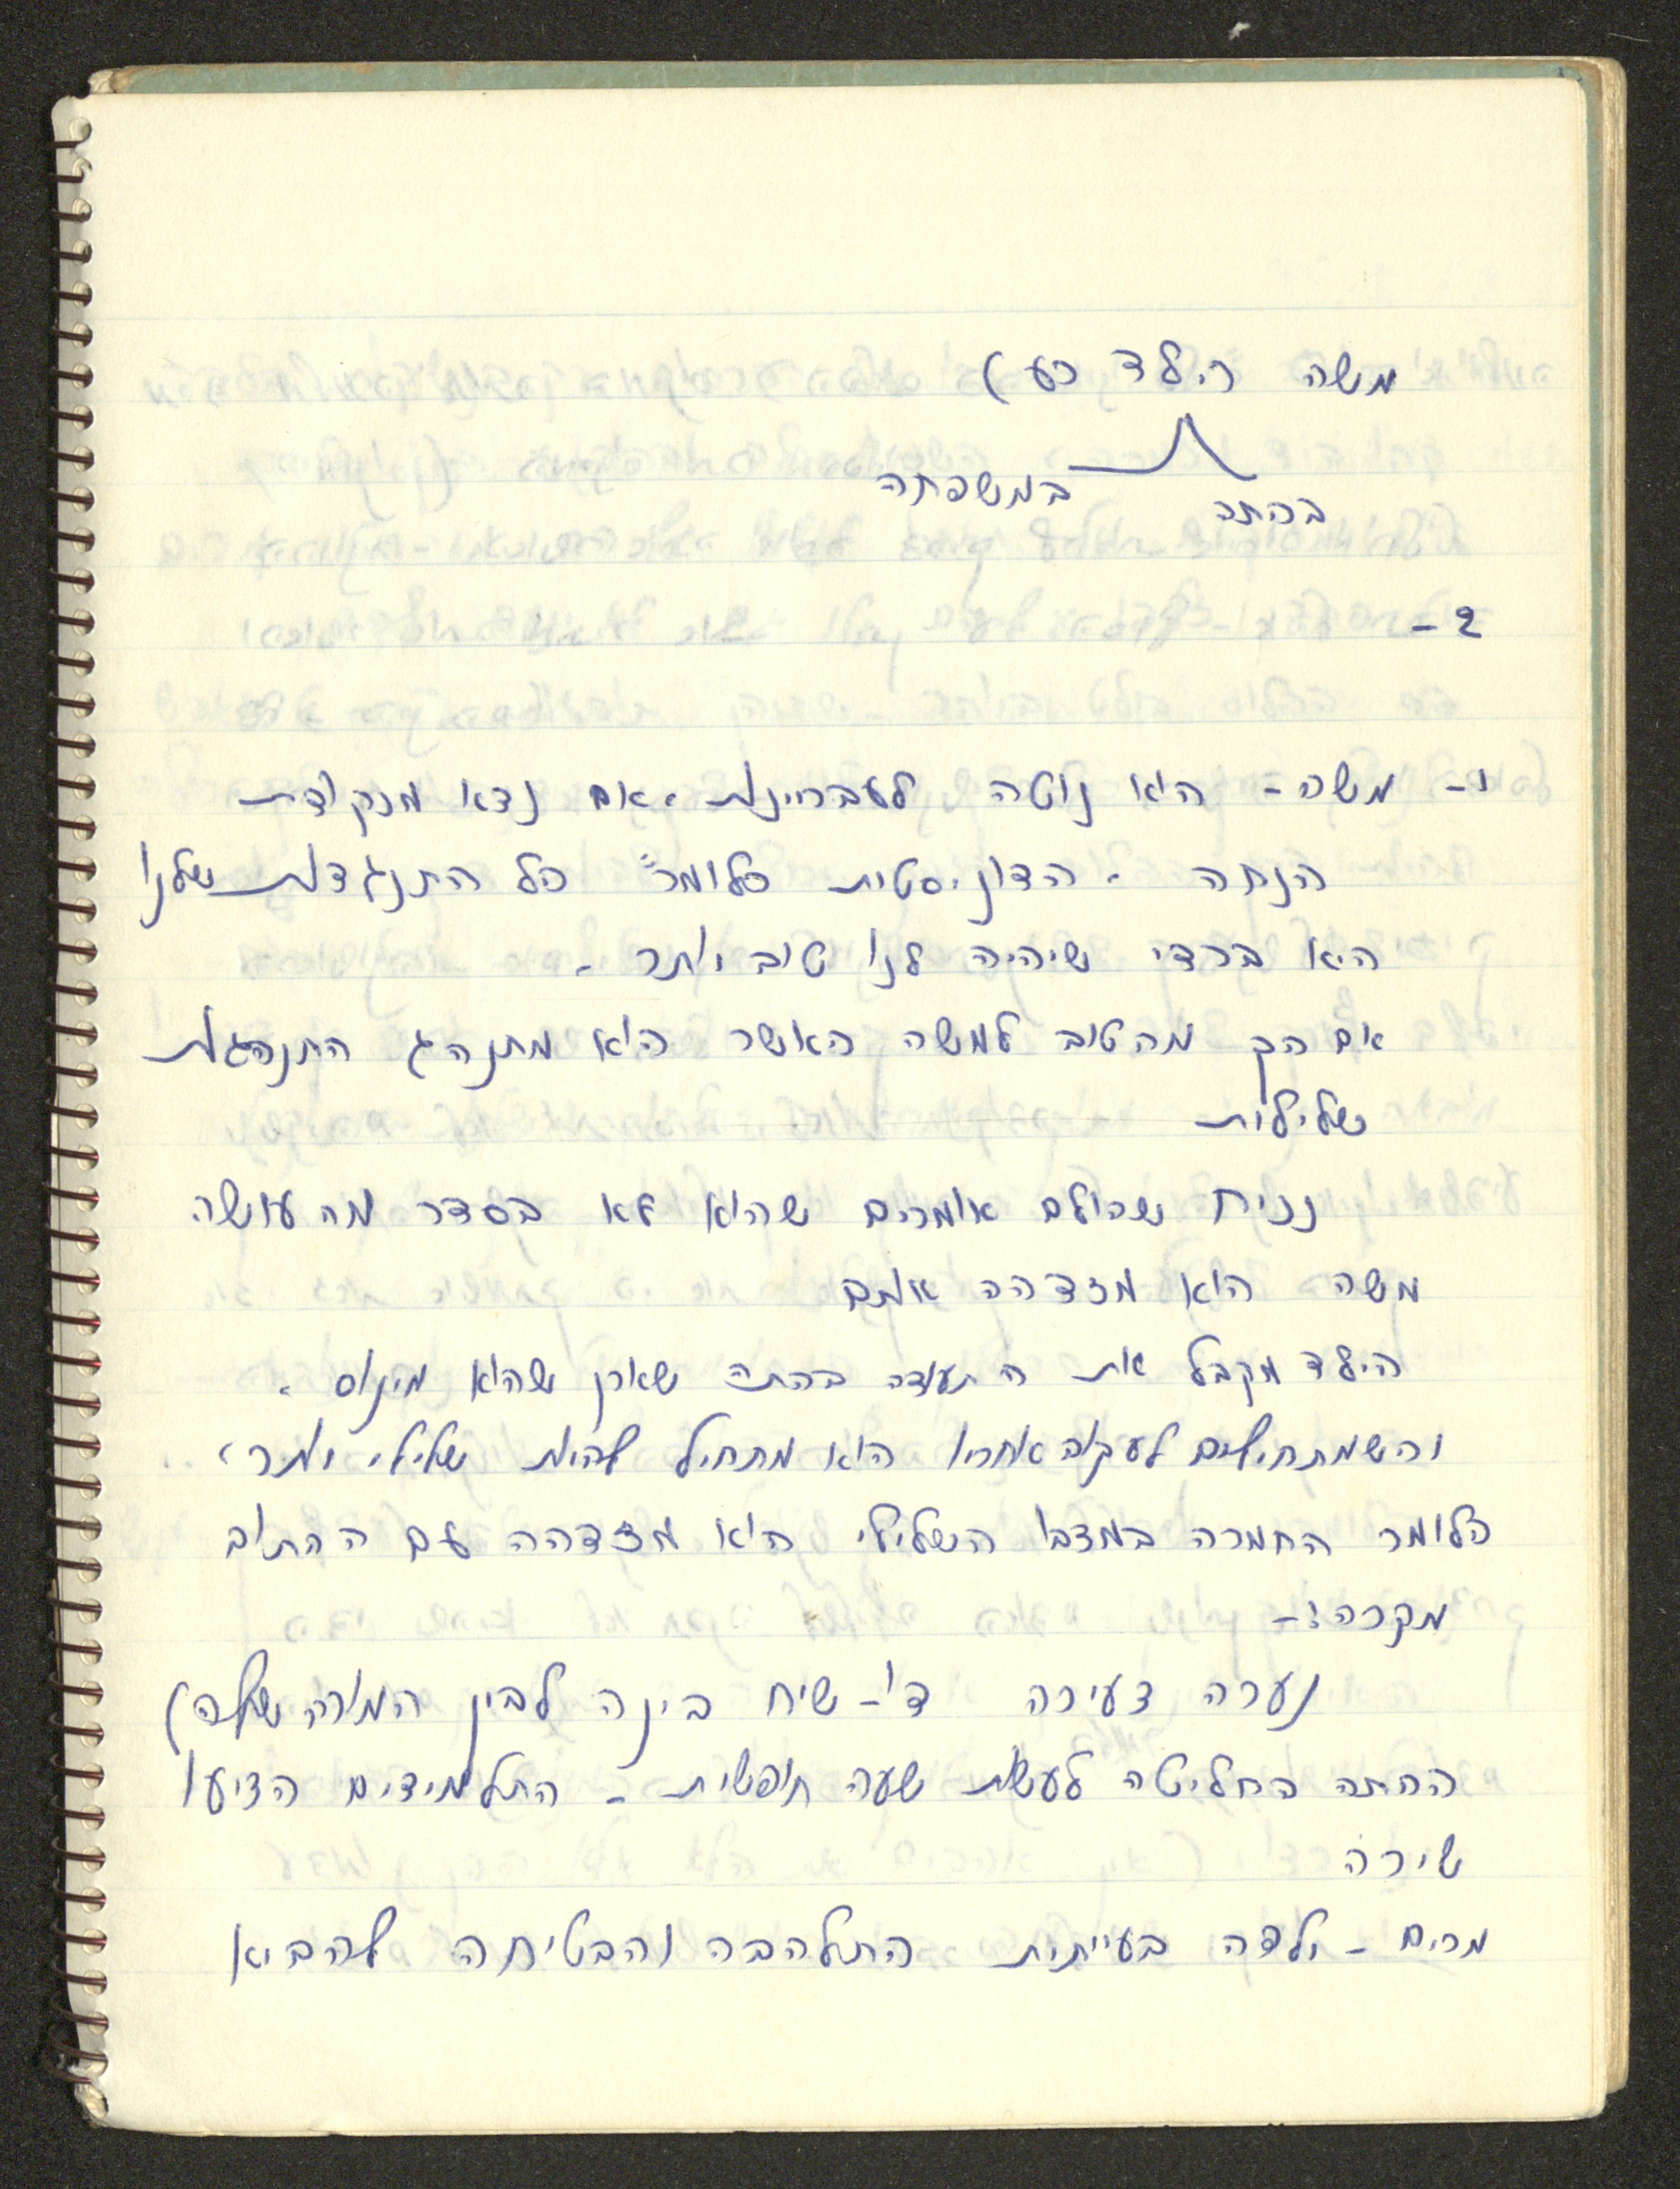 משה הילד רע)
בכתה במשפחה
2-
1- משה - הוא נוטה לעבריינות. אם נצא מנקודת
הנחה . הדוניסטית כלומר כל התנגדות שלנו
היא בכדי שיהיה לנו טוב יותר .
אם הק מהטוב למשה כאשר הוא מתנהג התנהגות
שלילית
נניח שכולם אומרים שהוא לא בסדר מה עושה
משה הוא מזדהה אותם
הילד מקבל את התעודה בכתה שארן שהוא מינוס .
והשמתחילים לעקוב אחריו הוא מתחיל להיות שלילי יותר,
כלומר החמרה במצבו השלילי הוא מזדהה עם הכתוב
מקרה:-
נערה צעירה דו-שיח בינה לבין המורה שלה)
הכתה החליטה לעשות שעה חופשית - התלמידים הציעו
שירה
מרים - ילדה בעייתית התלהבה והבטיחה להביא